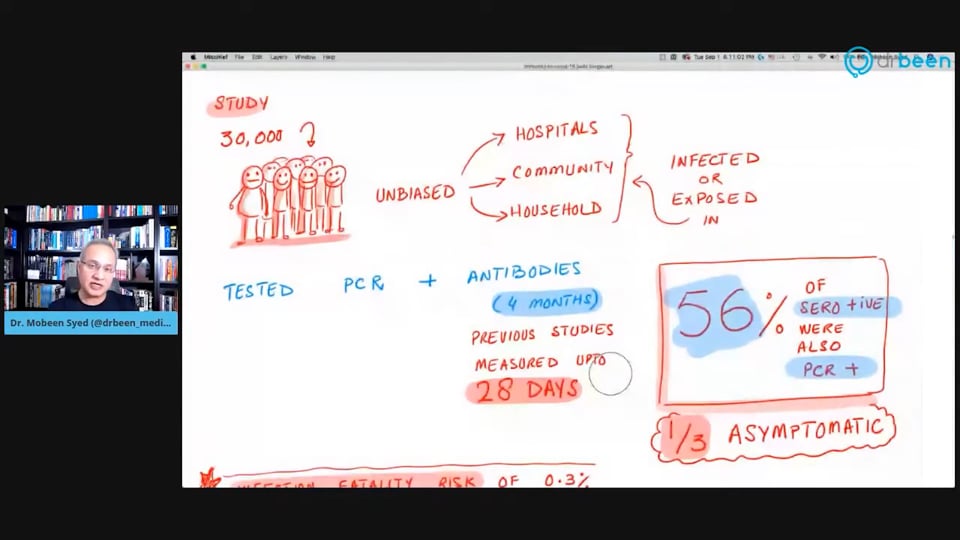 drbeen
File Edit Layers Window Help
Tue Sep 1
STUDY
30,000
UNBIASED
HOSPITALS
COMMUNITY
HOUSEHOLD
INFECTED
OR
EXPOSED
IN
TESTED PCR + ANTIBODIES
(4 MONTHS)
PREVIOUS STUDIES
MEASURED UPTO
28 DAYS
56%
OF
SERO +IVE
WERE
ALSO
PCR +
1/3 ASYMPTOMATIC
INFECTION FATALITY RISK OF 0.3%
Dr. Mobeen Syed (@drbeen_medi...